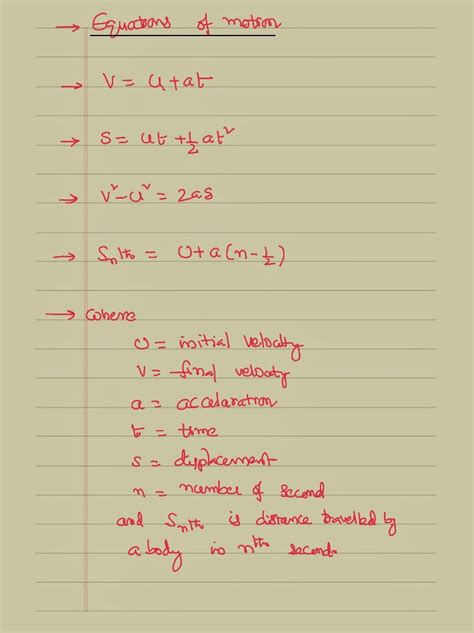 → Equations of motion
→ V = u + at
→ S = ut + 1/2 at²
→ V² - u² = 2as
→ Snth = U + a(n - 1/2)
→ where
U = initial velocity
V = final velocity
a = accelaration
t = time
s = displacement
n = number of second
and Snth is distance travelled by
a body in nth second.